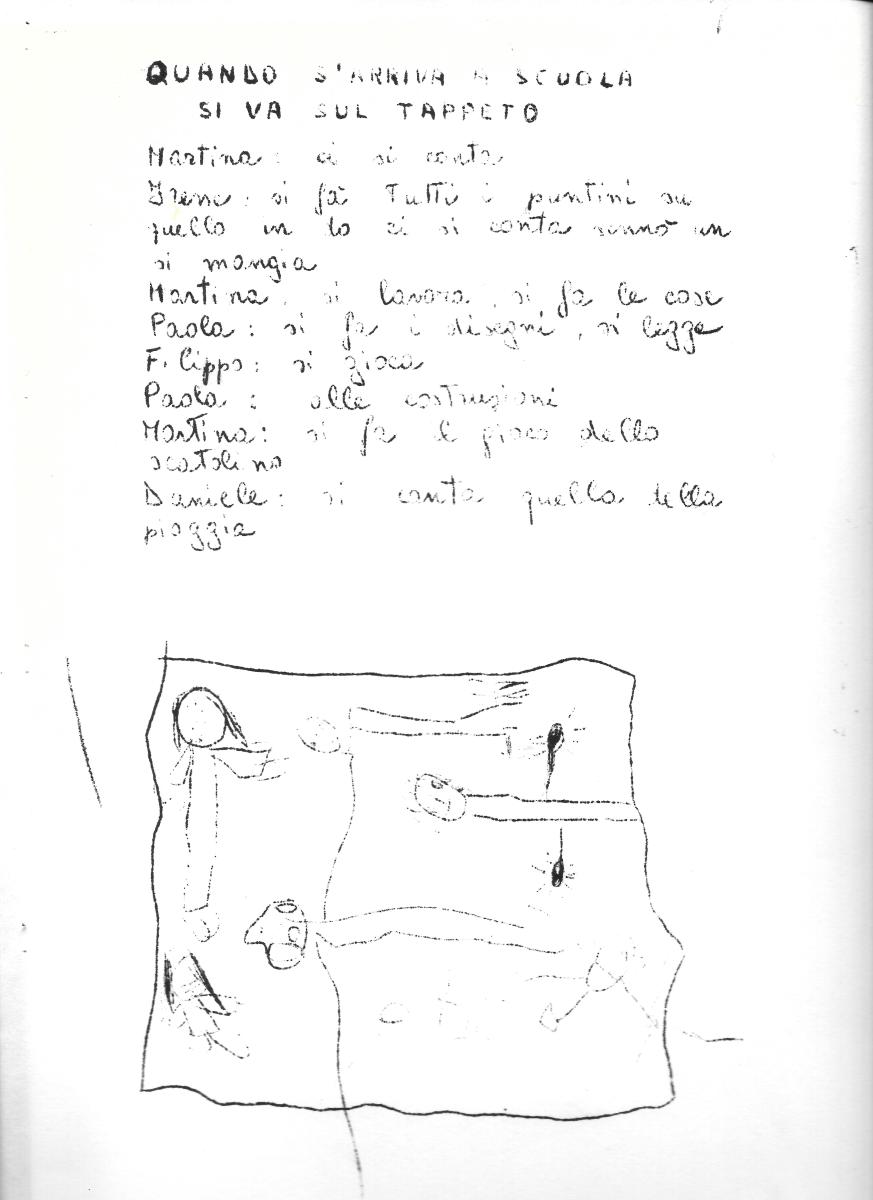 QUANDO S'ARRIVA A SCUOLA
SI VA SUL TAPPETO
Martina: ci si conta
Irene: si fà Tutti i puntini su
quello in do ci si conta sennò un
si mangia
Martina: si lavora, si fa le cose
Paola: si fa i disegni, si legge
Filippo: si gioca
Paola: alle costruzioni
Martina: si fa il gioco dello
scatolino
Daniele: si canta quella della
pioggia